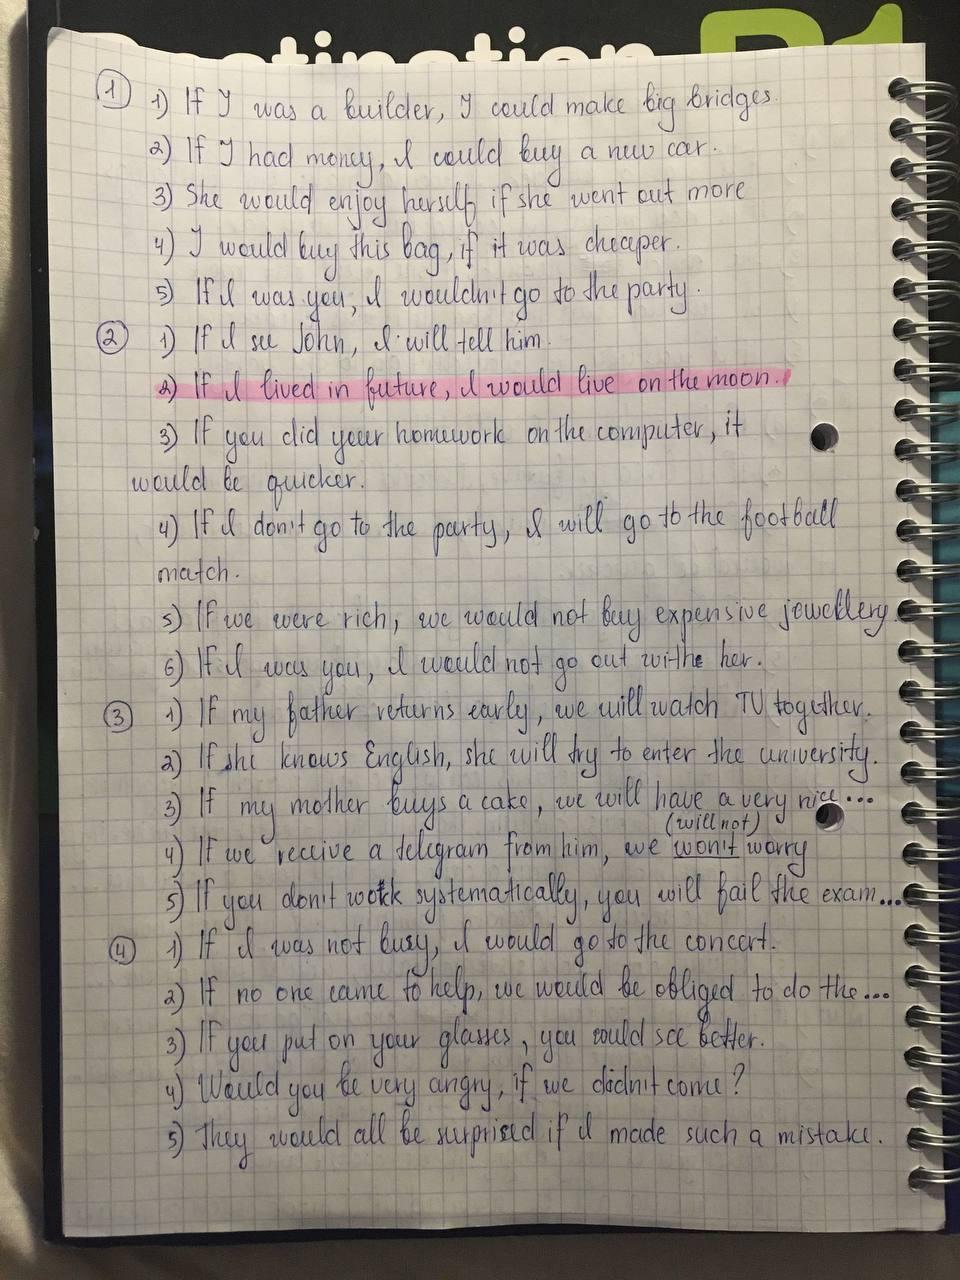 Destination B1
① 1) If I was a builder, I could make big bridges.
2) If I had money, I could buy a new car.
3) She would enjoy herself if she went out more
4) I would buy this bag, if it was cheaper.
5) If I was you, I wouldn't go to the party.
② 1) If I see John, I will tell him.
2) If I lived in future, I would live on the moon.
3) If you did your homework on the computer, it
would be quicker.
4) If I don't go to the party, I will go to the football
match.
5) If we were rich, we would not buy expensive jewellery.
6) If I was you, I would not go out withe her.
③ 1) If my father returns early, we will watch TV together.
2) If she knows English, she will try to enter the university.
3) If my mother buys a cake, we will have a very nice...
(will not)
4) If we receive a telegram from him, we won't worry
5) If you don't work systematically, you will fail the exam...
④ 1) If I was not busy, I would go to the concert.
2) If no one came to help, we would be obliged to do the...
3) If you put on your glasses, you could see better.
4) Would you be very angry, if we didn't come?
5) They would all be surprised if I made such a mistake.